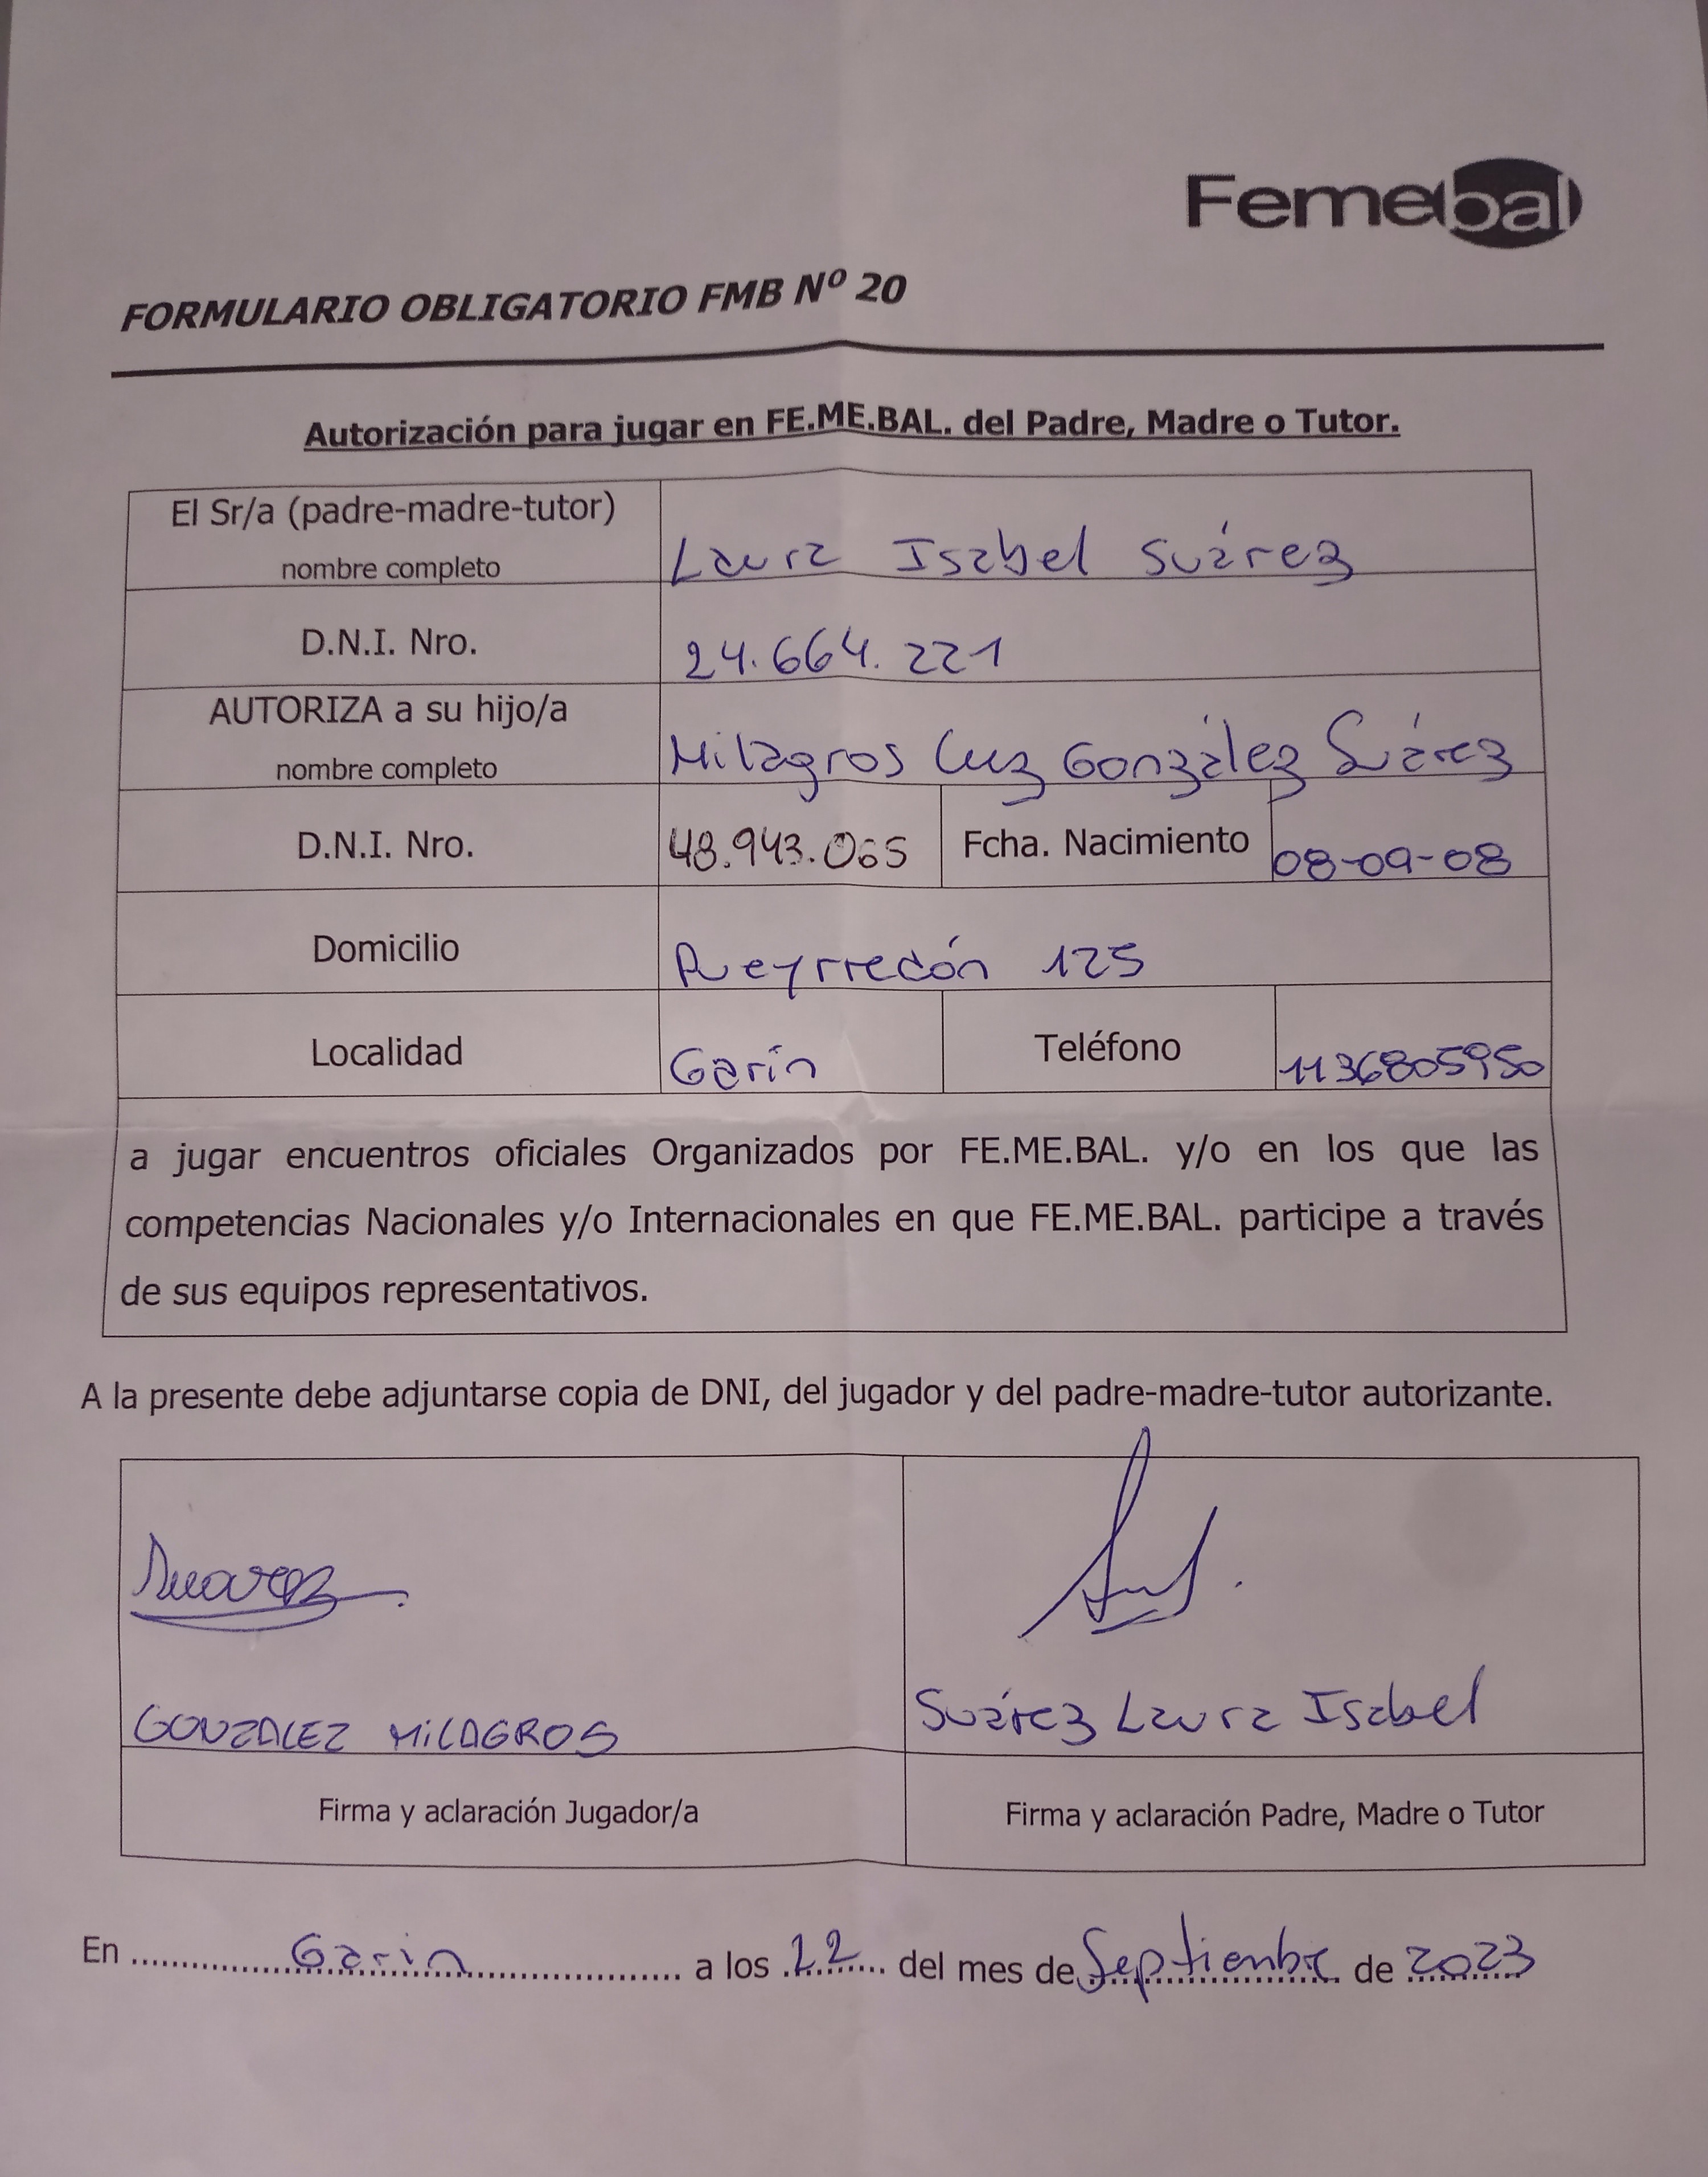 Femebal
FORMULARIO OBLIGATORIO FMB Nº 20
Autorización para jugar en FE.ME.BAL. del Padre, Madre o Tutor.
El Sr/a (padre-madre-tutor)
nombre completo
Laura Isabel Suárez
D.N.I. Nro.
24.664.221
AUTORIZA a su hijo/a
nombre completo
Milagros Luz González Suárez
D.N.I. Nro.
48.943.065
Fcha. Nacimiento
08-09-08
Domicilio
Pueyrredón 125
Localidad
Garín
Teléfono
1136805950
a jugar encuentros oficiales Organizados por FE.ME.BAL. y/o en los que las
competencias Nacionales y/o Internacionales en que FE.ME.BAL. participe a través
de sus equipos representativos.
A la presente debe adjuntarse copia de DNI, del jugador y del padre-madre-tutor autorizante.
Suarez
GONZALEZ MILAGROS
Suárez Laura Isabel
Firma y aclaración Jugador/a
Firma y aclaración Padre, Madre o Tutor
En Garin a los 22 del mes de Septiembre de 2023